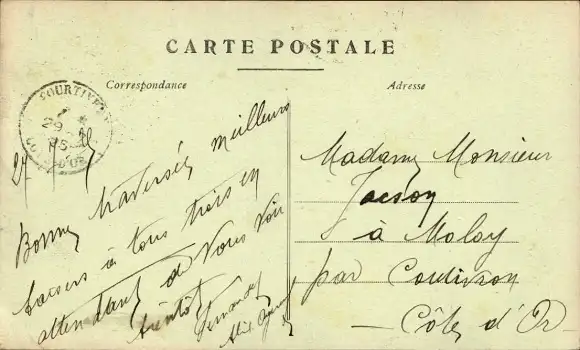 CARTE POSTALE
Correspondance
Adresse
Bonne traversée meilleurs
baisers à tous trois en
attendant de vous voir
bientôt
Madame Monsieur
à Moloy
par Courtivron
Côte d'Or